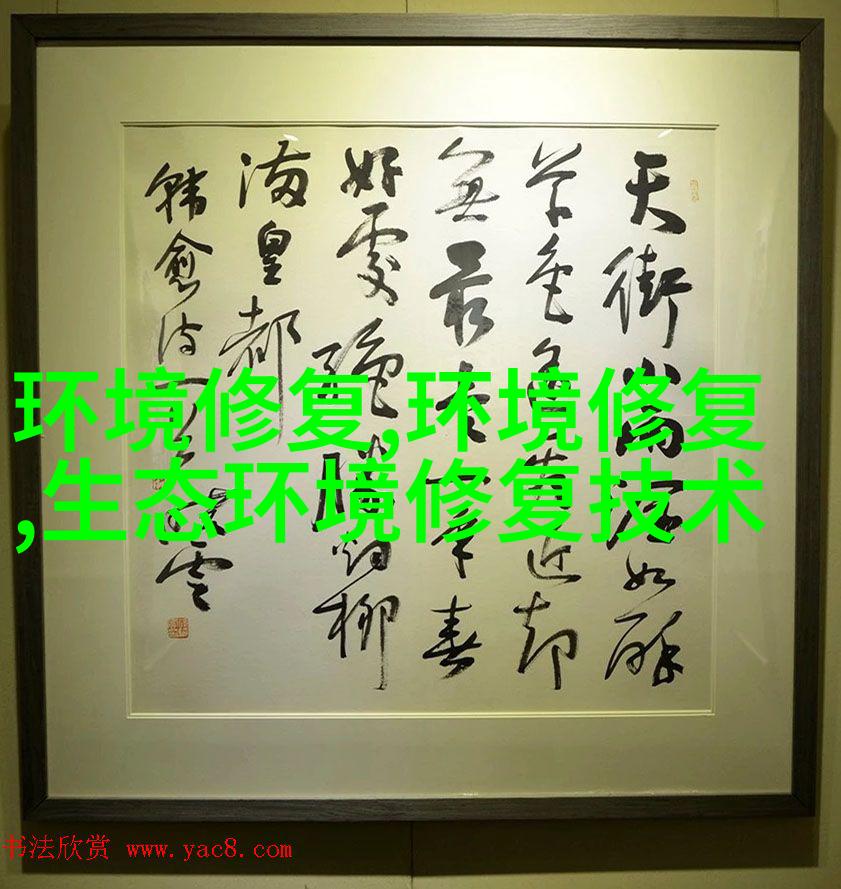 天街小雨润如酥
草色遥看近却
無最是一年春
好處絕勝烟柳
满皇都
韩愈诗一首
环境修复,环境修复
,生态环境修复技术
书法欣赏 www.yac8.com